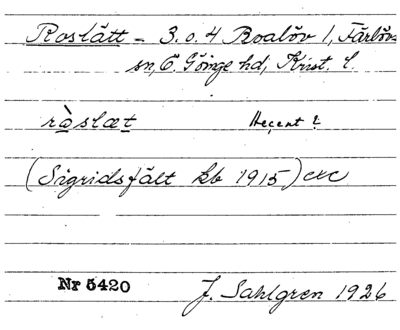 Roslätt – 3 o. 4 Roalöv 1, Färlövs
sn, Ö. Göinge hd, Krist. l.
ràslæt Hecent?
(Sigridsfält kb 1915) etc
Nr 5420 J. Sahlgren 1926